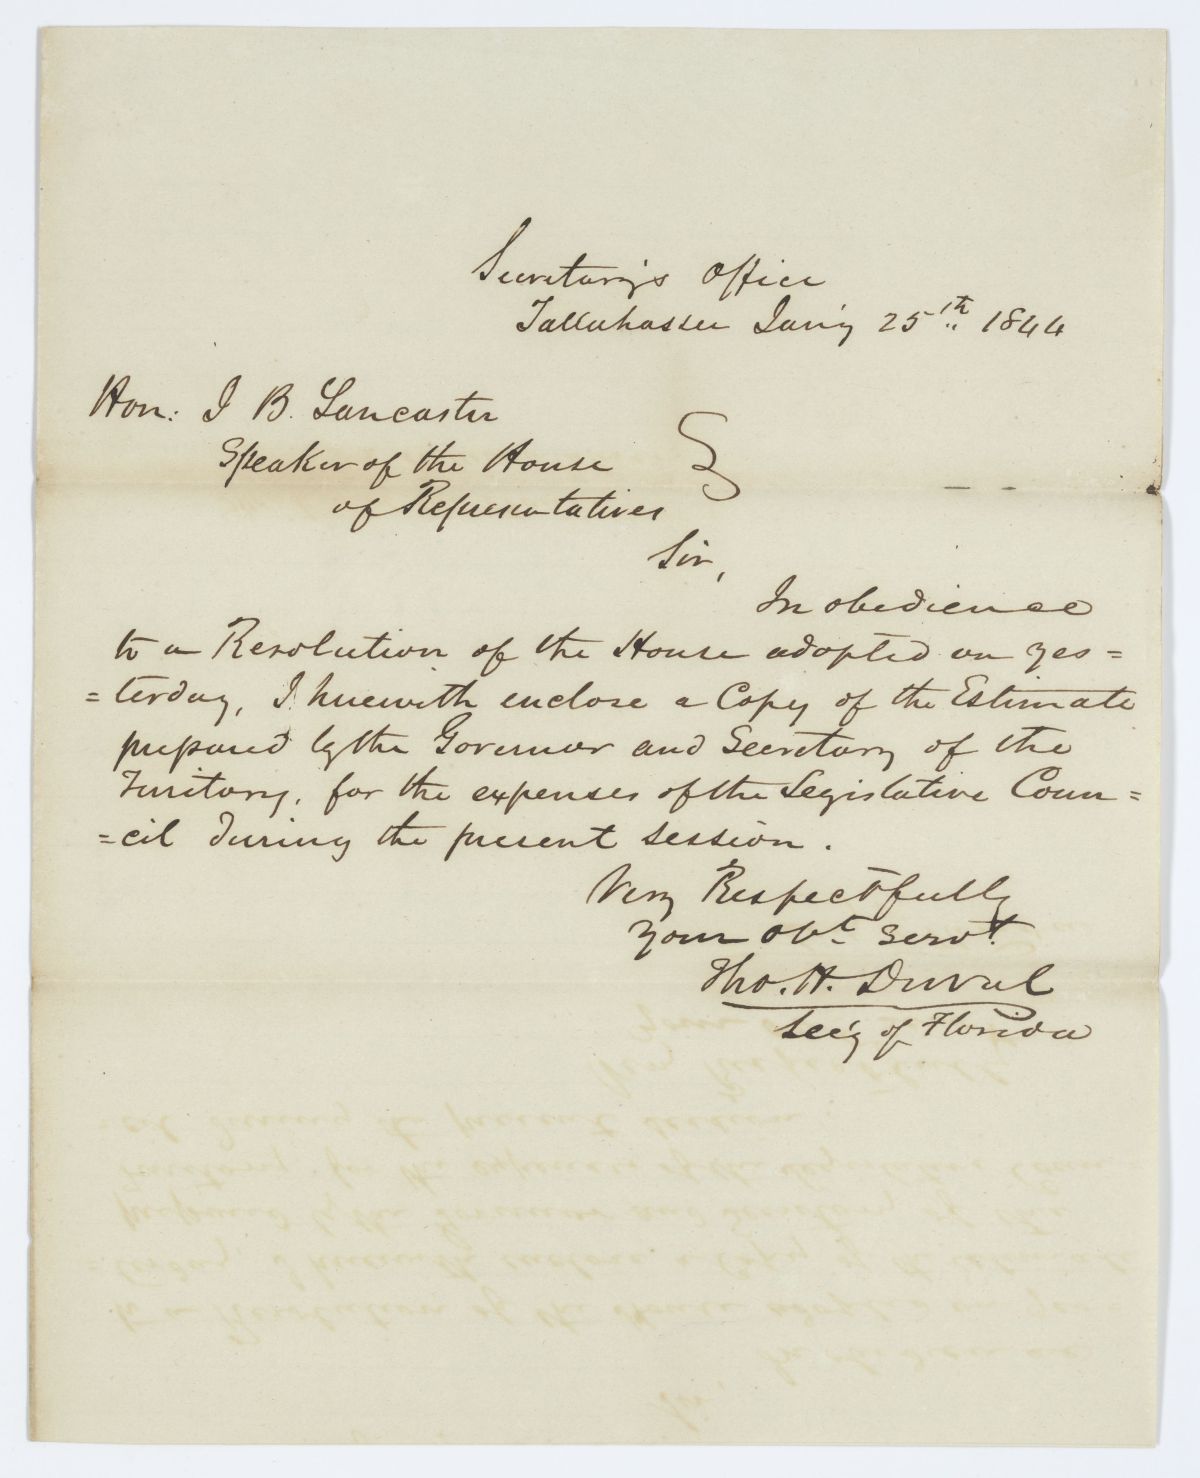 Secretary's Office
Tallahassee Jan'y 25th 1844
Hon: J B. Lancaster
Speaker of the House
of Representatives
Sir,
In obedience
to a Resolution of the House adopted on yes=
=terday, I herewith enclose a Copy of the Estimate
prepared by the Governor and Secretary of the
Territory, for the expenses of the Legislative Coun=
=cil during the present session.
Very Respectfully
Your Obt Servt
Tho. H. Duval
Sec'y of Florida